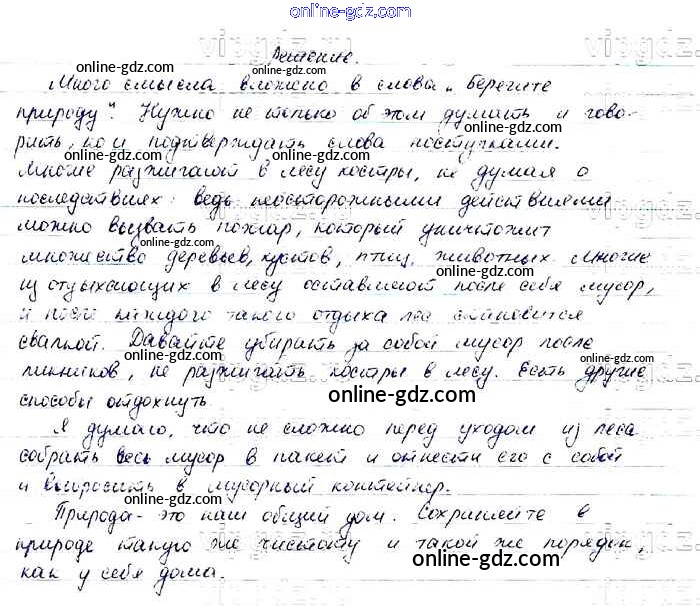 online-gdz.com
online-gdz.com
Решение.
Много смысла вложено в слова „Берегите
природу". Нужно не только об этом думать и гово-
рить, но и подтверждать слова поступками.
Многие разжигают в лесу костры, не думая о
последствиях: ведь неосторожными действиями
можно вызвать пожар, который уничтожит
множество деревьев, кустов, птиц, животных. Многие
из отдыхающих в лесу оставляют после себя мусор,
и после каждого такого отдыха лес становится
свалкой. Давайте убирать за собой мусор после
пикников, не разжигать костры в лесу. Есть другие
способы отдохнуть.
Я думаю, что не сложно перед уходом из леса
собрать весь мусор в пакет и отнести его с собой
и выбросить в мусорный контейнер.
Природа - это наш общий дом. Сохраняйте в
природе такую же чистоту и такой же порядок,
как у себя дома.